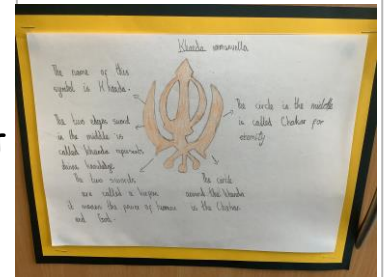 Khanda
The name of this
symbol is Khanda.
The two edges sword
in the middle is
called khanda
The two swords
are called a
it means the power of human
and God.
The circle in the middle
is called Chakar for
eternity
The circle
around the khanda
is the Chakar